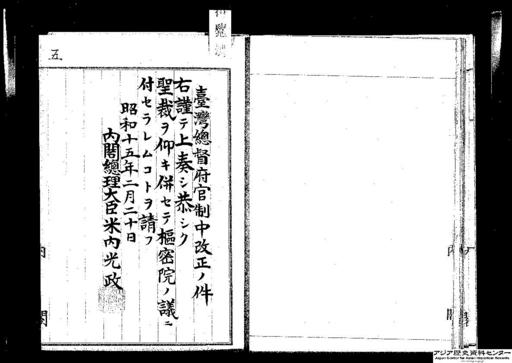 臺灣總督府官制中改正ノ件
右謹テ上奏シ恭シク
聖裁ヲ仰キ併セテ樞密院ノ議ニ
付セラレムコトヲ請フ
昭和十五年二月二十日
內閣總理大臣米內光政
五
內
閣
アジア歴史資料センター
Japan Center for Asian Historical Records